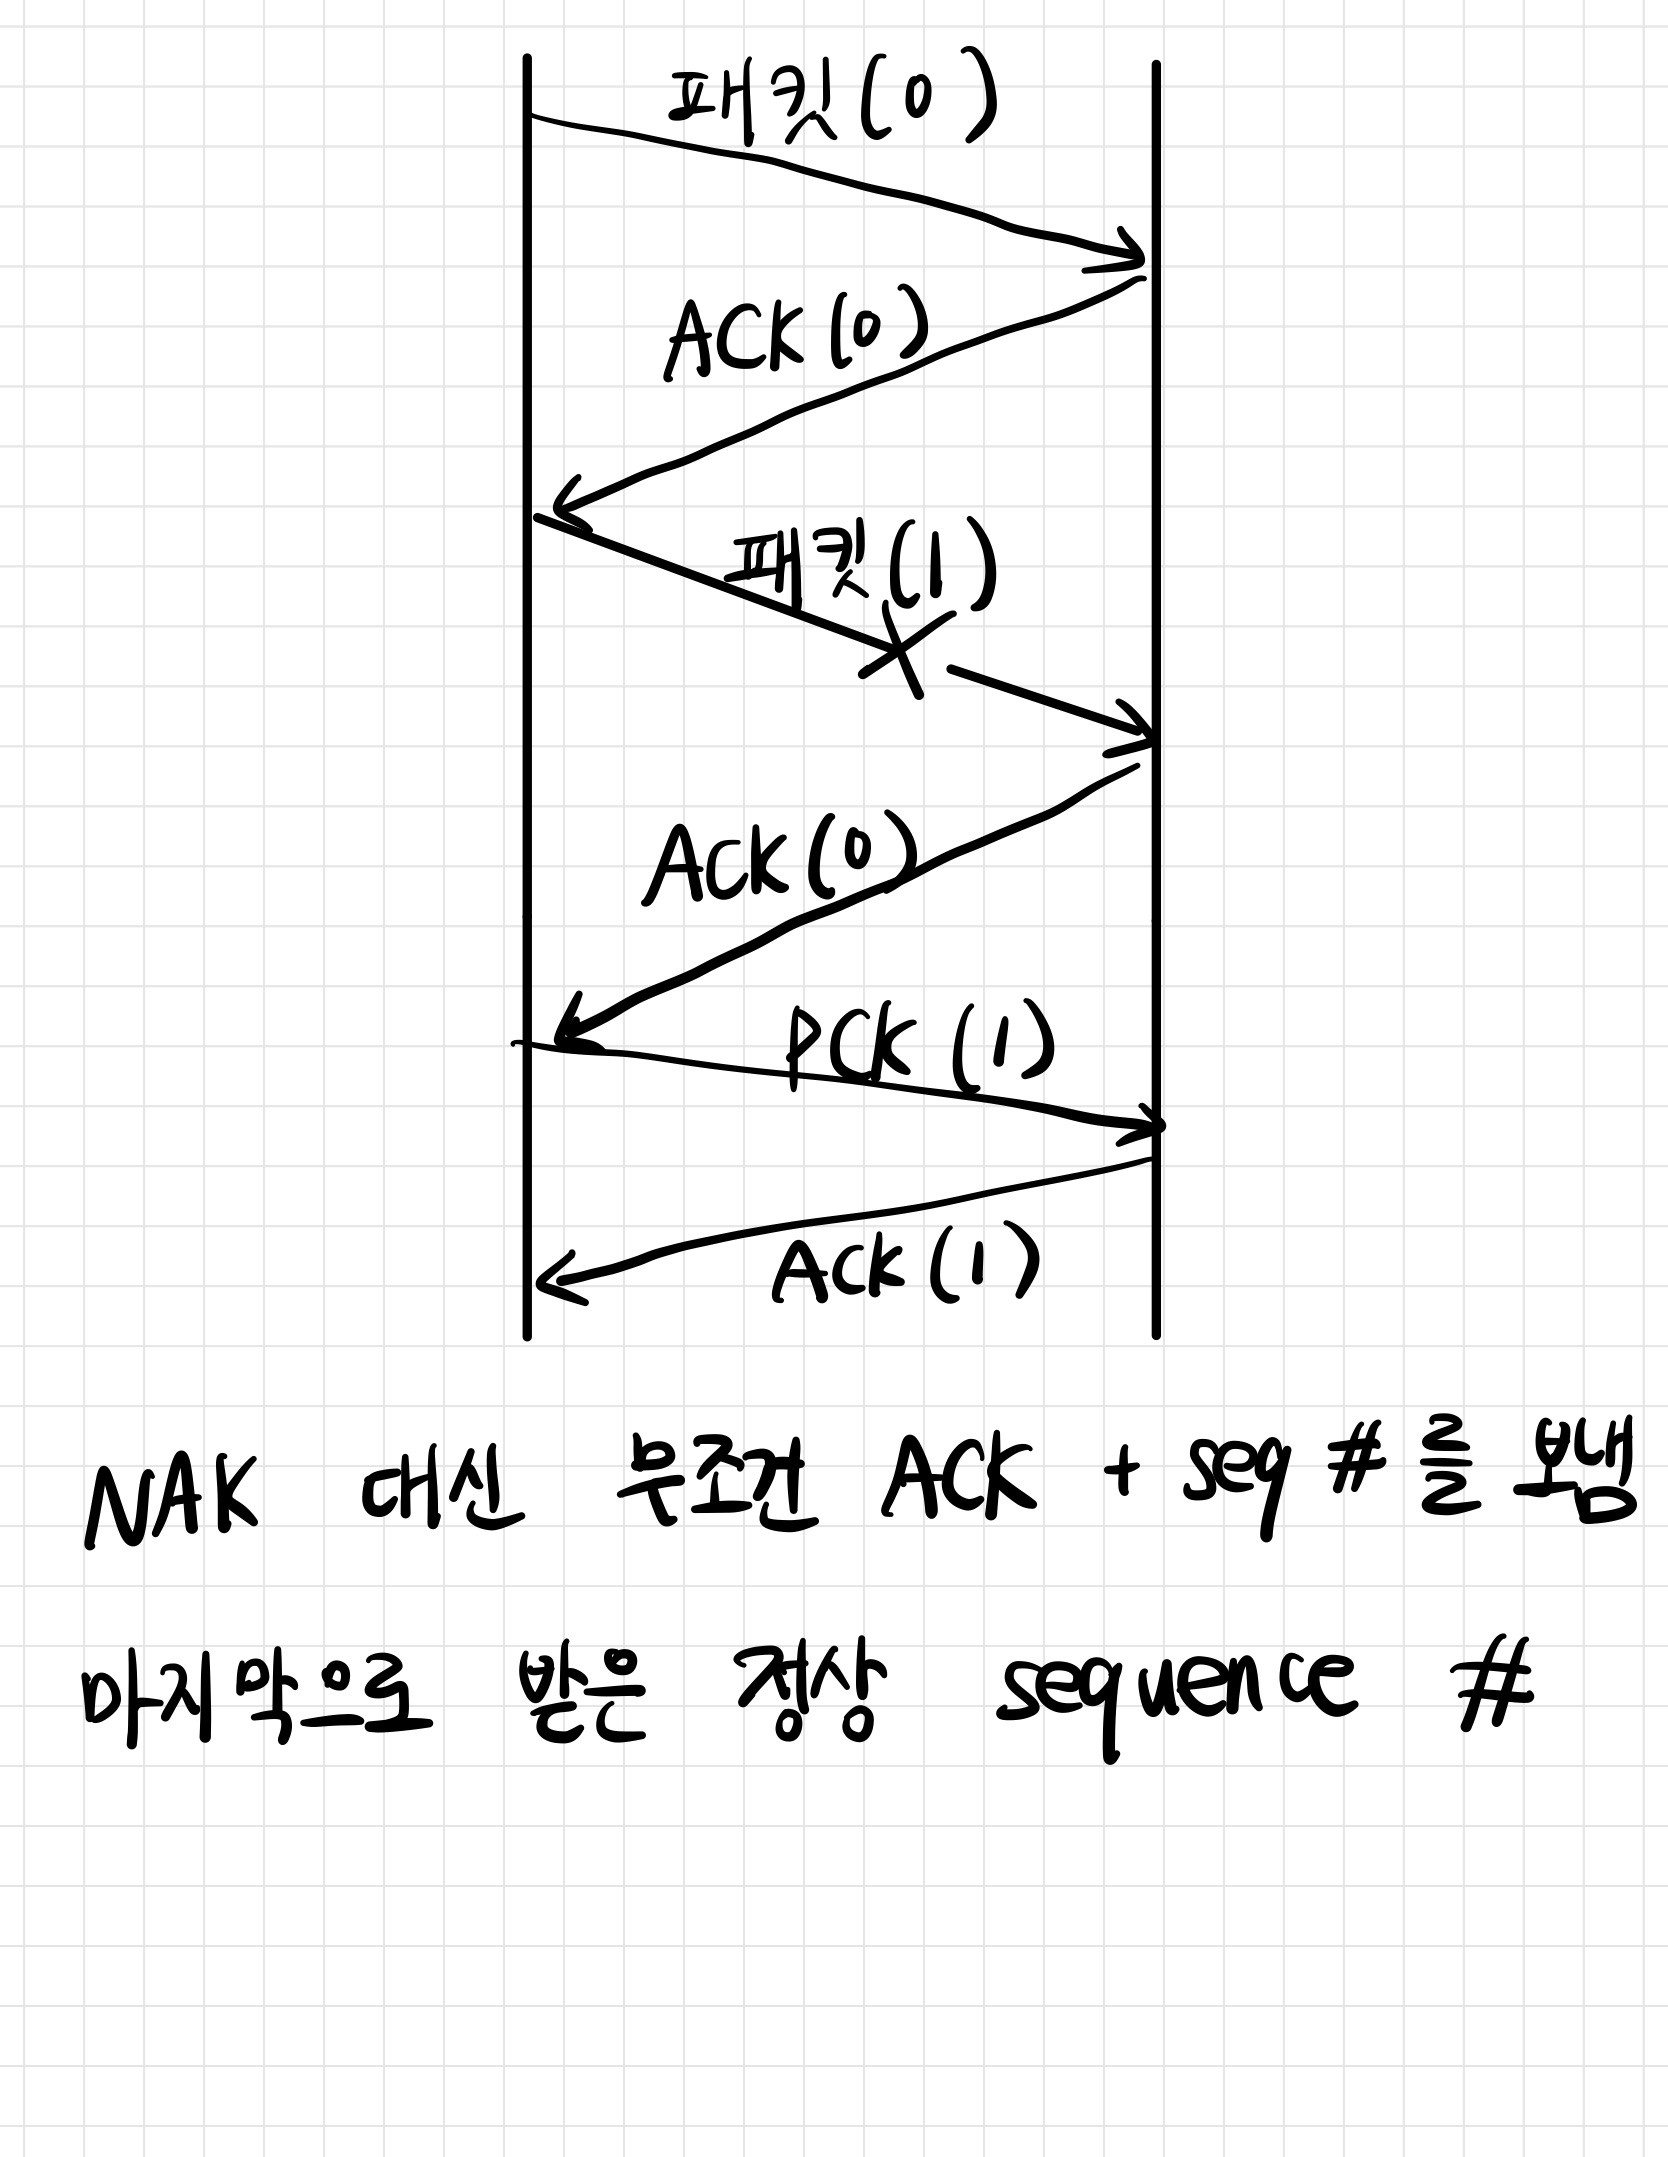 패킷(0)
ACK(0)
패킷(1)
ACK(0)
PCK(1)
ACK(1)
NAK 대신 무조건 ACK + seq #를 보냄
마지막으로 받은 정상 sequence #